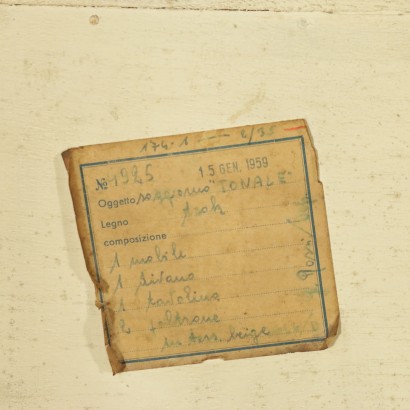 174.1 — 2/35
№ 1925 15 GEN. 1959
Oggetto soggiorno "TONALE"
Legno teak
composizione
1 mobile
1 divano
1 tavolino
2 poltrone
in tess. beige